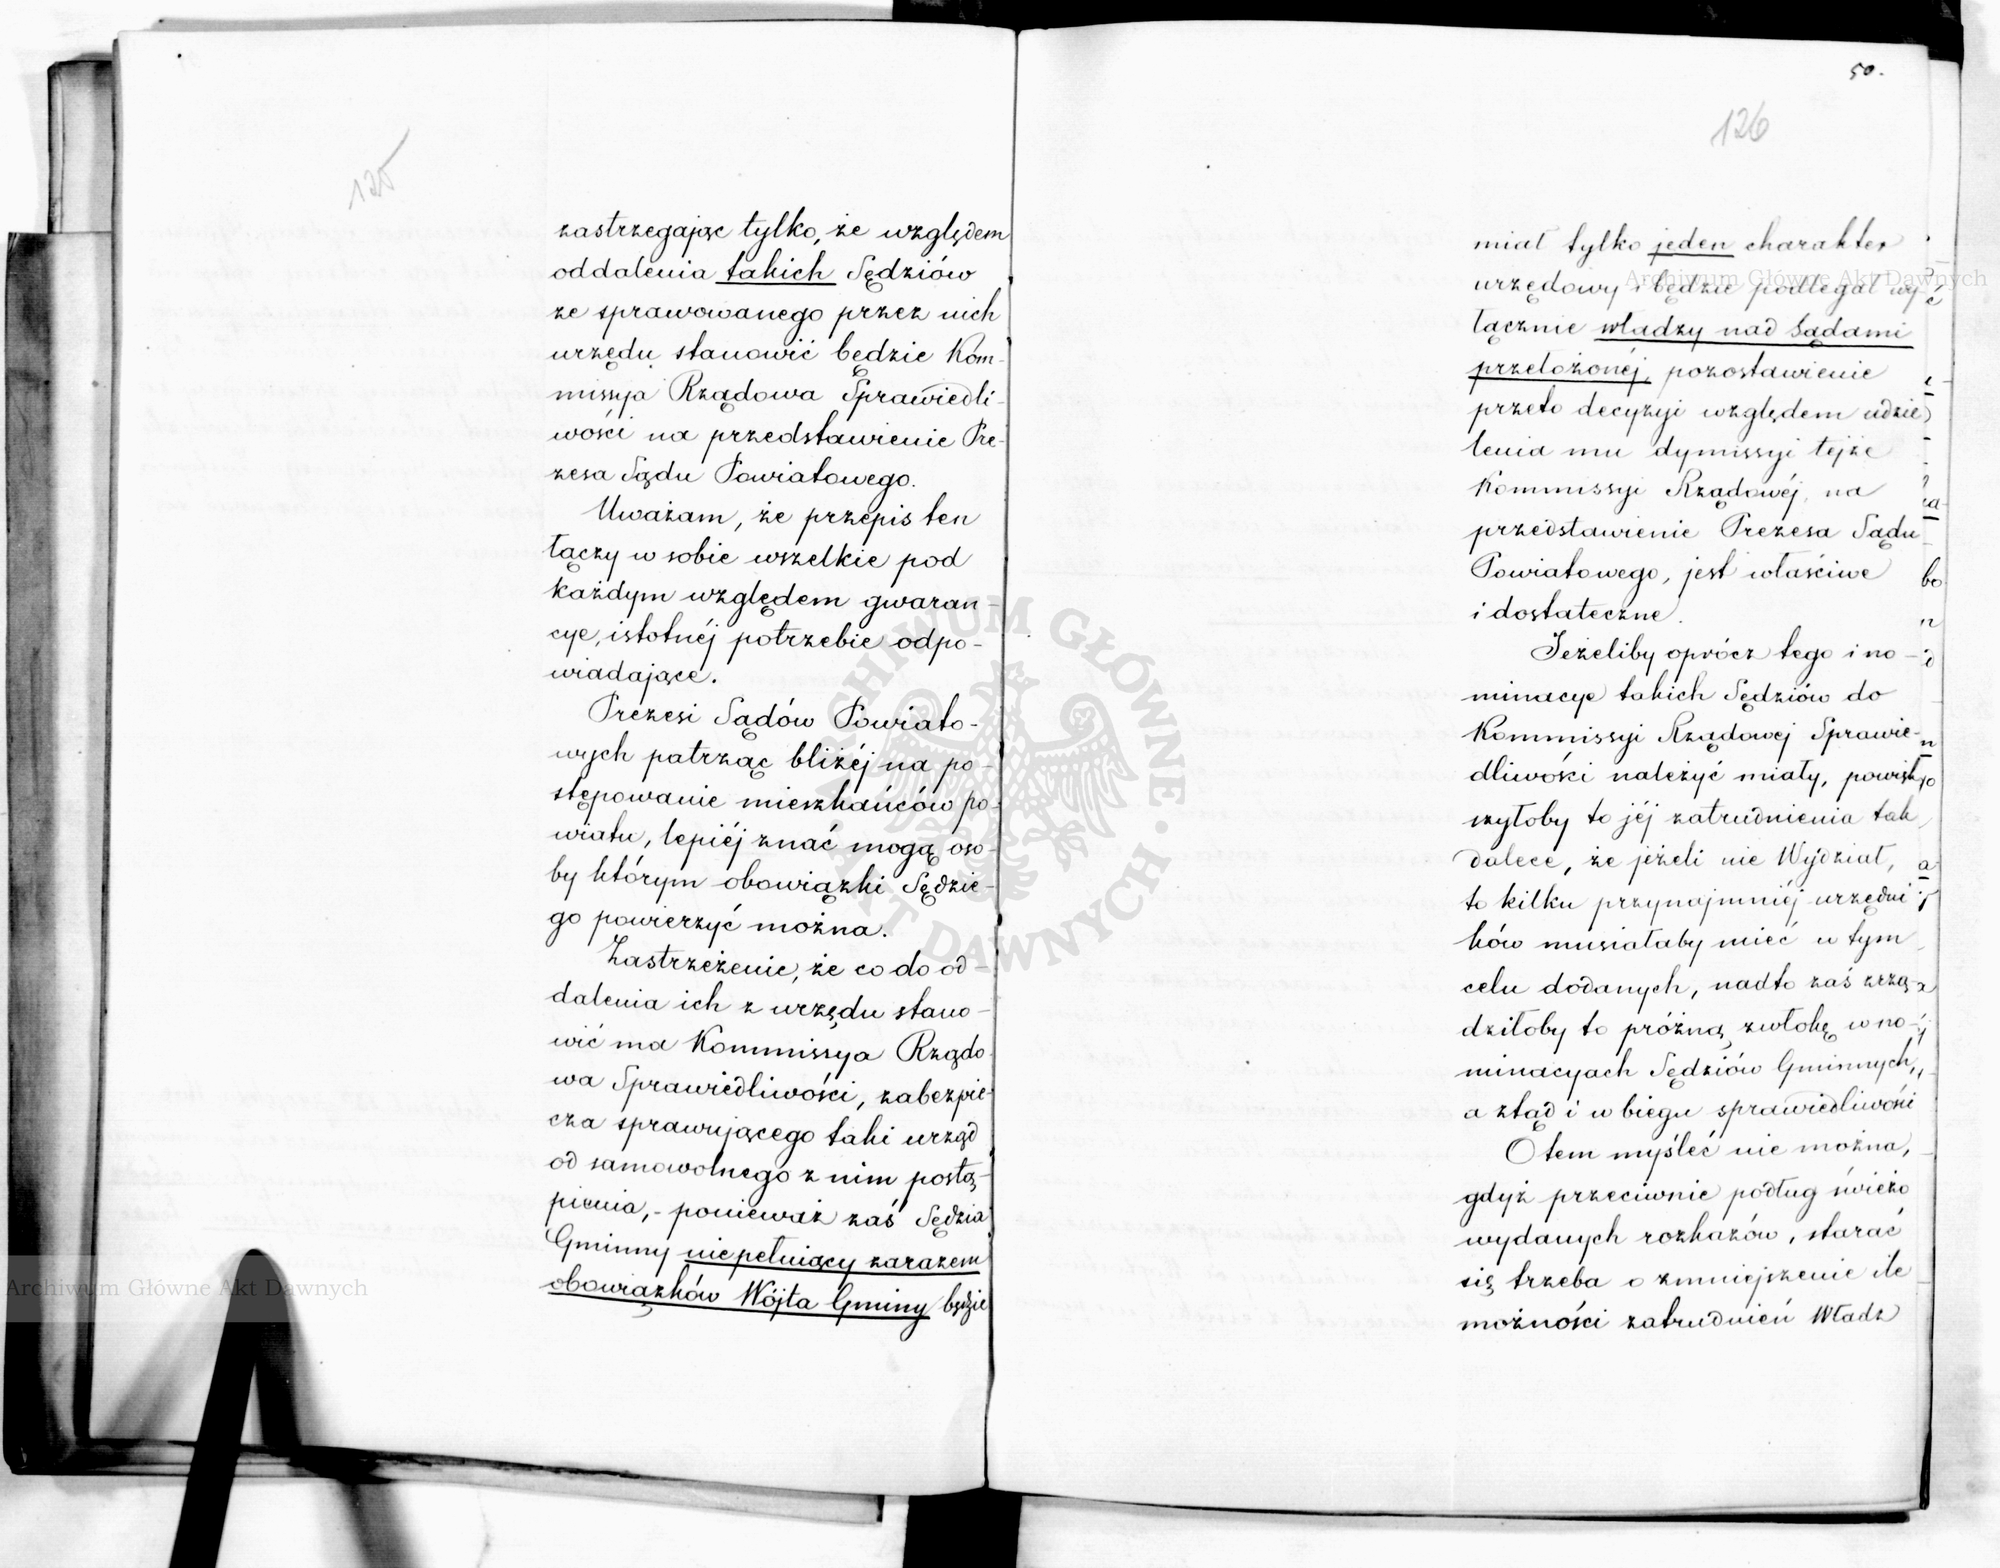 125
zastrzegając tylko, że względem
oddalenia takich Sędziów
ze sprawowanego przez nich
urzędu stanowić będzie Kom-
missya Rządowa Sprawiedli-
wości na przedstawienie Pre-
zesa Sądu Powiatowego.
Uważam, że przepis ten
łączy w sobie wszelkie pod
każdym względem gwaran-
cye, istotnéj potrzebie odpo-
wiadające.
Prezesi Sądów Powiato-
wych patrząc bliżéj na po-
stępowanie mieszkańców po-
wiatu, lepiéj znać mogą oso-
by którym obowiązki Sędzie-
go powierzyć można.
Zastrzeżenie, że co do od-
dalenia ich z urzędu stano-
wić ma Kommissya Rządo-
wa Sprawiedliwości, zabezpie-
cza sprawującego taki urząd
od samowolnego z nim postą-
pienia, - ponieważ zaś Sędzia
Gminny nie pełniący zarazem
obowiązków Wójta Gminy będzie
50.
126
miał tylko jeden charakter
urzędowy i będzie podlegał wy-
łącznie władzy nad Sądami
przełożonéj, pozostawienie
przeto decyzyi względem udzie
lenia mu dymissyi tejże
Kommissyi Rządowéj, na
przedstawienie Prezesa Sądu
Powiatowego, jest właściwe
i dostateczne.
Jeżeliby oprócz tego i no-
minacye takich Sędziów do
Kommissyi Rządowéj Sprawie-
dliwości należyć miały, powięk
szyłoby to jéj zatrudnienia tak
dalece, że jeżeli nie Wydział,
to kilku przynajmniéj urzędni
ków musiałaby mieć w tym
celu dodanych, nadto zaś zrzą-
dziłoby to próżną zwłokę w no-
minacyach Sędziów Gminnych,
a ztąd i w biegu sprawiedliwości
O tem myśléć nie można,
gdyż przeciwnie podług świeżo
wydanych rozkazów, starać
się trzeba o zmniejszenie ile
możności zatrudnień Władz
ARCHIWUM GŁÓWNE AKT DAWNYCH
Archiwum Główne Akt Dawnych
Archiwum Główne Akt Dawnych